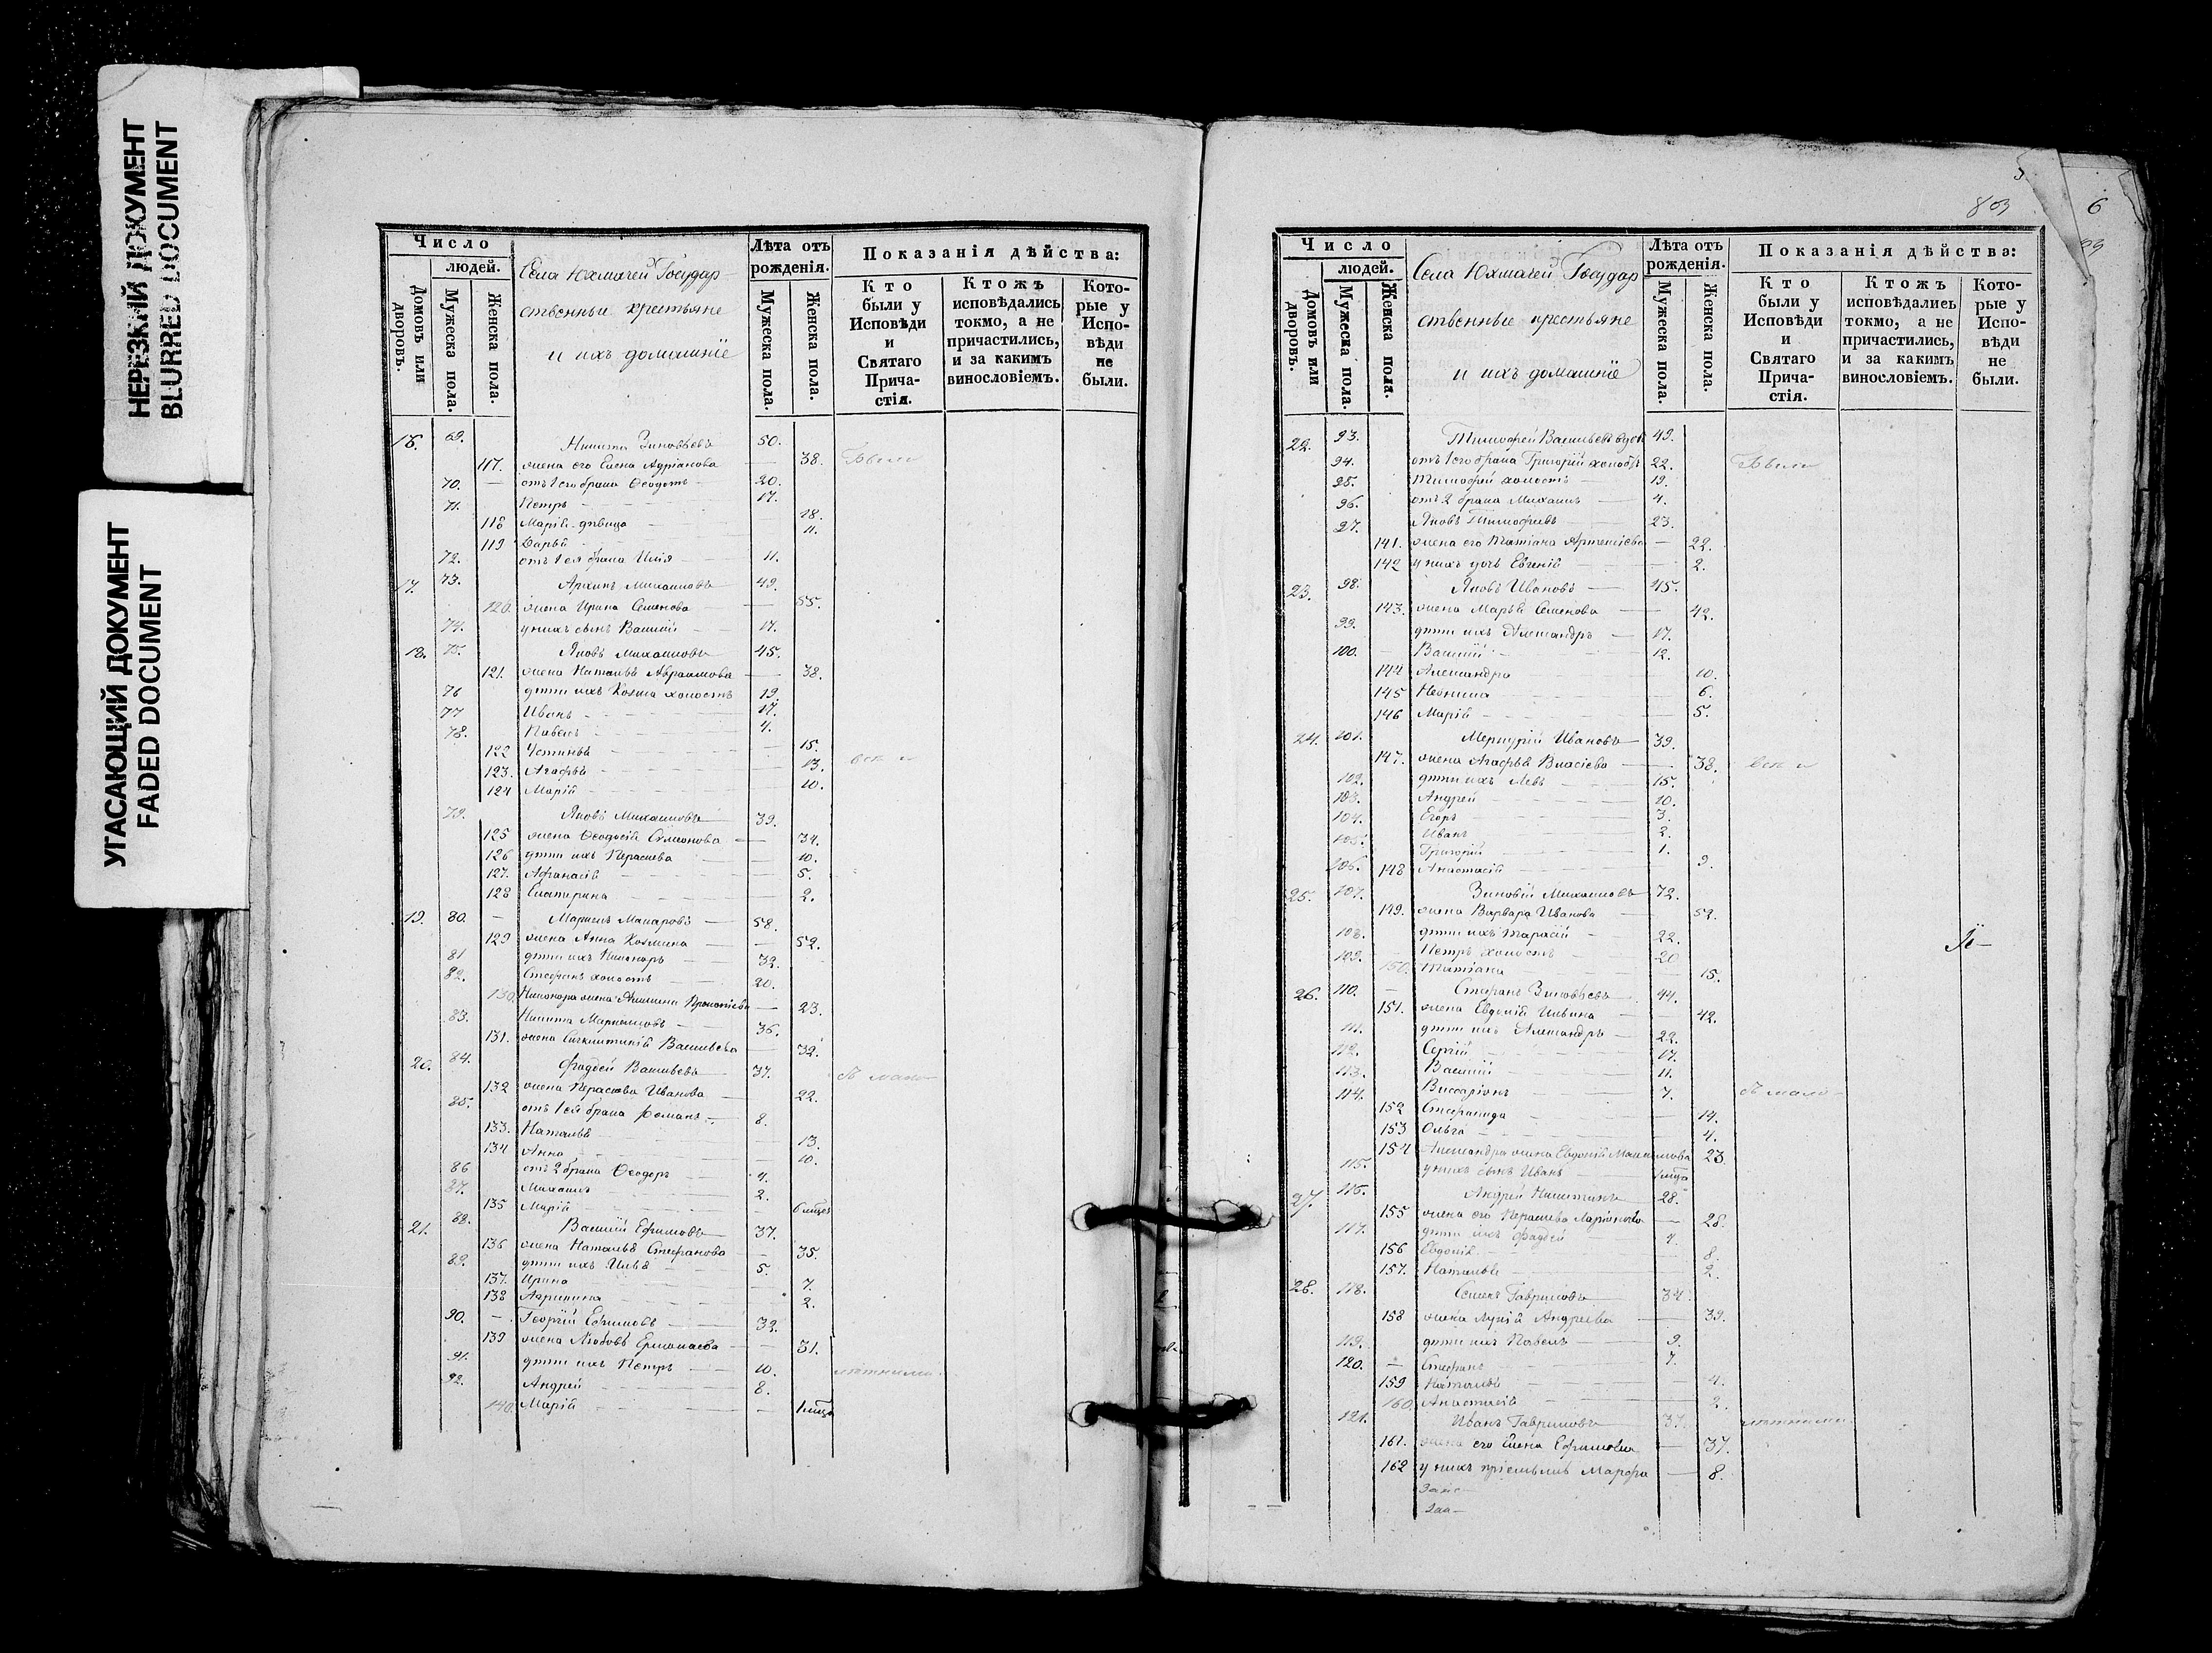 НЕРЕЗКИЙ ДОКУМЕНТ
BLURRED DOCUMENT
УГАСАЮЩИЙ ДОКУМЕНТ
FADED DOCUMENT
Число
людей.
Домовъ или дворовъ.
Мужеска пола.
Женска пола.
Села Юхмачей Государ-
ственные крестьяне
и ихъ домашніе
Лѣта отъ рожденія.
Мужеска пола.
Женска пола.
Показанія дѣйства:
Кто были у Исповѣди и Святаго Причастія.
Ктожъ исповѣдались токмо, а не причастились, и за какимъ винословіемъ.
Которые у Исповѣди не были.
16. 69. Никита Зиновьевъ 50.
117. жена его Елена Адріанова — 38. Были
70. — отъ 1 его брака Ѳеодотъ 20.
71. Петръ 17.
118 Марія дѣвица 18.
119 Дарья 11.
72. отъ 1 ея брака Илія 11.
17. 73. Архипъ Михаиловъ 49.
120. жена Ирина Семенова — 55.
74. у нихъ сынъ Василій 17.
18. 75. Яковъ Михаиловъ 45.
121. жена Наталья Авраамова — 38.
76 дѣти ихъ Козма холостъ 19.
77 Иванъ 17.
78. Павелъ 4.
122 Устинья 15.
123. Агафья 13.
124 Марія 10.
79. Яковъ Михаиловъ 39.
125 жена Ѳеодосія Симеонова — 34.
126 дѣти ихъ Параскева 10.
127. Афанасія 5.
128 Екатерина 2.
19. 80. — Маркелъ Макаровъ 58.
129 жена Анна Козмина — 52.
81 дѣти ихъ Никаноръ 32.
82. Стефанъ холостъ 20.
130. Никанора жена Акилина Прокопіева — 23.
83. Никита Маркелловъ 36.
131. жена Васильева — 32.
20. 84. Фаддей Васильевъ 37.
132 жена Параскева Иванова — 22.
85. отъ 1 ея брака Романъ 8.
133. Наталья 13.
134 Анна 10.
86 отъ 2 брака Ѳеодоръ 4.
87. Михаилъ 2.
135 Марія 6 мѣсц.
21. 88. Василій Ефимовъ 37.
136 жена Наталья Стефанова — 35.
89. дѣти ихъ Илья 5.
137. Ирина 7.
138 Агрипина 2.
90. — Георгій Ефимовъ 32.
139 жена Любовь Ермолаева — 31.
91. дѣти ихъ Петръ 10.
92. Андрей 8.
140. Марія — 1 мѣсц.
803
6
99
Число
людей.
Домовъ или дворовъ.
Мужеска пола.
Женска пола.
Села Юхмачей Государ
ственные крестьяне
и ихъ домашніе
Лѣта отъ рожденія.
Мужеска пола.
Женска пола.
Показанія дѣйства:
Кто были у Исповѣди и Святаго Причастія.
Ктожъ исповѣдались токмо, а не причастились, и за какимъ винословіемъ.
Которые у Исповѣди не были.
22. 93. Тимофей Васильевъ вдов 49.
94. отъ 1 его брака Григорій холостъ 22. Были
95. Тимофей холостъ 19.
96. отъ 2 брака Михаилъ 4.
97. Яковъ Тимофеевъ 23.
141. жена его Татіана Артеміева — 22.
142 у нихъ дочь Евгенія 2.
23. 98. Яковъ Ивановъ 45.
143. жена Марья Семенова — 42.
99. дѣти ихъ Александръ 17.
100. Василій 12.
144 Александра 10.
145 Неонила 6.
146 Марія 5.
24. 101. Меркурій Ивановъ 39.
147. жена Агафья Власіева — 38.
102. дѣти ихъ Левъ 15.
103. Андрей 10.
104. Егоръ 3.
105. Иванъ 2.
106. Григорій 1.
148 Анастасія 9.
25. 107. Зиновій Михаиловъ 72.
149. жена Варвара Иванова 52.
108. дѣти ихъ Тарасій 22.
109. Петръ холостъ 20
150. Татіана 15.
26. 110. Стефанъ Зиновьевъ 44.
151. жена Евдокія Ильина 42.
111. дѣти ихъ Александръ 22.
112. Сергій 17.
113. Василій 11.
114. Виссаріонъ 7.
152 Стефанида 14.
153 Ольга 4.
154 Александра жена Евдокія Максимова 23
115. у нихъ сынъ Иванъ
27. 116. Андрей Никитинъ 28.
155 жена его Параскева Ларіонова — 28.
117. дѣти ихъ Фаддей 4.
156 Евдокія 8.
157. Наталья 2.
28. 118. Семенъ Гавриловъ 34.
158 жена Лукія Андреева 39.
119. дѣти ихъ Павелъ 9.
120. — Стефанъ 7.
159 Наталья 4.
160. Анастасія 2.
121. Иванъ Гавриловъ 37.
161. жена его Елена Ефимова — 37.
162 у нихъ пріемышъ Марфа — 8.